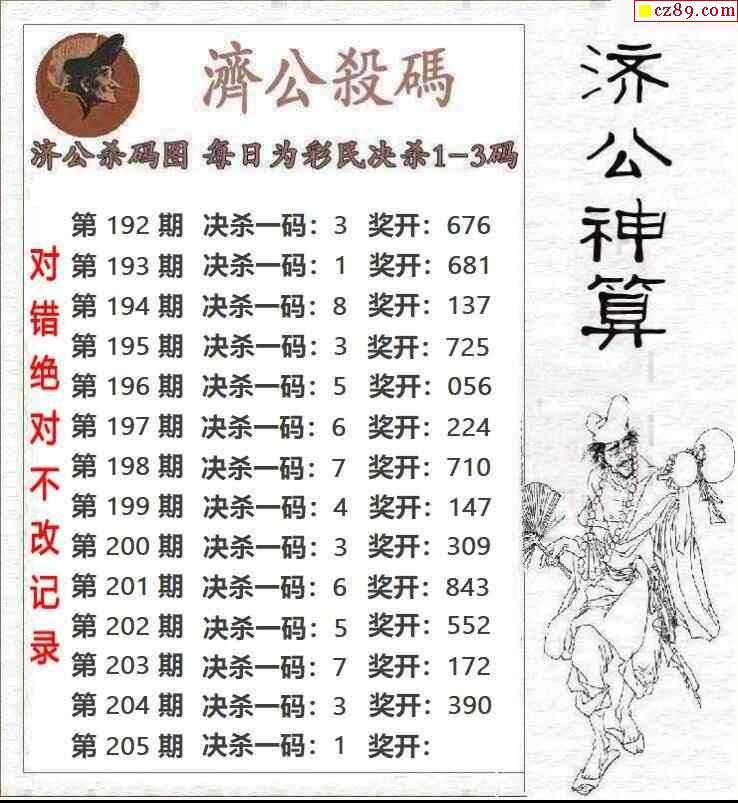 cz89.com
濟公殺碼
济公杀码图 每日为彩民决杀1-3码
第 192 期 决杀一码：3 奖开：676
第 193 期 决杀一码：1 奖开：681
第 194 期 决杀一码：8 奖开：137
第 195 期 决杀一码：3 奖开：725
第 196 期 决杀一码：5 奖开：056
第 197 期 决杀一码：6 奖开：224
第 198 期 决杀一码：7 奖开：710
第 199 期 决杀一码：4 奖开：147
第 200 期 决杀一码：3 奖开：309
第 201 期 决杀一码：6 奖开：843
第 202 期 决杀一码：5 奖开：552
第 203 期 决杀一码：7 奖开：172
第 204 期 决杀一码：3 奖开：390
第 205 期 决杀一码：1 奖开：
对错绝对不改记录
济公神算